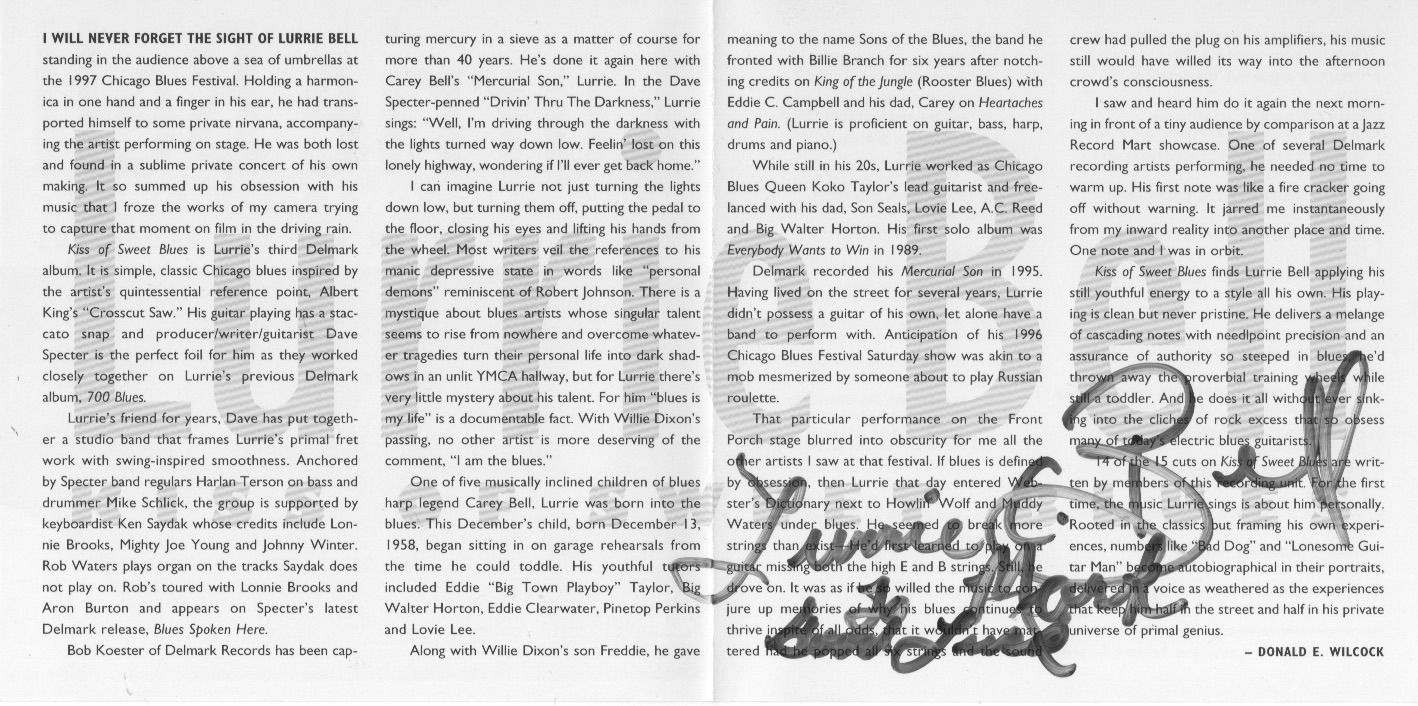 I WILL NEVER FORGET THE SIGHT OF LURRIE BELL
standing in the audience above a sea of umbrellas at
the 1997 Chicago Blues Festival. Holding a harmon-
ica in one hand and a finger in his ear, he had trans-
ported himself to some private nirvana, accompany-
ing the artist performing on stage. He was both lost
and found in a sublime private concert of his own
making. It so summed up his obsession with his
music that I froze the works of my camera trying
to capture that moment on film in the driving rain.
Kiss of Sweet Blues is Lurrie's third Delmark
album. It is simple, classic Chicago blues inspired by
the artist's quintessential reference point, Albert
King's "Crosscut Saw." His guitar playing has a stac-
cato snap and producer/writer/guitarist Dave
Specter is the perfect foil for him as they worked
closely together on Lurrie's previous Delmark
album, 700 Blues.
Lurrie's friend for years, Dave has put togeth-
er a studio band that frames Lurrie's primal fret
work with swing-inspired smoothness. Anchored
by Specter band regulars Harlan Terson on bass and
drummer Mike Schlick, the group is supported by
keyboardist Ken Saydak whose credits include Lon-
nie Brooks, Mighty Joe Young and Johnny Winter.
Rob Waters plays organ on the tracks Saydak does
not play on. Rob's toured with Lonnie Brooks and
Aron Burton and appears on Specter's latest
Delmark release, Blues Spoken Here.
Bob Koester of Delmark Records has been cap-
turing mercury in a sieve as a matter of course for
more than 40 years. He's done it again here with
Carey Bell's "Mercurial Son," Lurrie. In the Dave
Specter-penned "Drivin' Thru The Darkness," Lurrie
sings: "Well, I'm driving through the darkness with
the lights turned way down low. Feelin' lost on this
lonely highway, wondering if I'll ever get back home."
I can imagine Lurrie not just turning the lights
down low, but turning them off, putting the pedal to
the floor, closing his eyes and lifting his hands from
the wheel. Most writers veil the references to his
manic depressive state in words like "personal
demons" reminiscent of Robert Johnson. There is a
mystique about blues artists whose singular talent
seems to rise from nowhere and overcome whatev-
er tragedies turn their personal life into dark shad-
ows in an unlit YMCA hallway, but for Lurrie there's
very little mystery about his talent. For him "blues is
my life" is a documentable fact. With Willie Dixon's
passing, no other artist is more deserving of the
comment, "I am the blues."
One of five musically inclined children of blues
harp legend Carey Bell, Lurrie was born into the
blues. This December's child, born December 13,
1958, began sitting in on garage rehearsals from
the time he could toddle. His youthful tutors
included Eddie "Big Town Playboy" Taylor, Big
Walter Horton, Eddie Clearwater, Pinetop Perkins
and Lovie Lee.
Along with Willie Dixon's son Freddie, he gave
meaning to the name Sons of the Blues, the band he
fronted with Billie Branch for six years after notch-
ing credits on King of the Jungle (Rooster Blues) with
Eddie C. Campbell and his dad, Carey on Heartaches
and Pain. (Lurrie is proficient on guitar, bass, harp,
drums and piano.)
While still in his 20s, Lurrie worked as Chicago
Blues Queen Koko Taylor's lead guitarist and free-
lanced with his dad, Son Seals, Lovie Lee, A.C. Reed
and Big Walter Horton. His first solo album was
Everybody Wants to Win in 1989.
Delmark recorded his Mercurial Son in 1995.
Having lived on the street for several years, Lurrie
didn't possess a guitar of his own, let alone have a
band to perform with. Anticipation of his 1996
Chicago Blues Festival Saturday show was akin to a
mob mesmerized by someone about to play Russian
roulette.
That particular performance on the Front
Porch stage blurred into obscurity for me all the
other artists I saw at that festival. If blues is defined
by obsession, then Lurrie that day entered Web-
ster's Dictionary next to Howlin' Wolf and Muddy
Waters under blues. He seemed to break more
strings than exist—He'd first learned to play on a
guitar missing both the high E and B strings. Still, he
drove on. It was as if he so willed the music to con-
jure up memories of his blues continues to
thrive inspite of all odds, that it wouldn't have mat-
tered had he popped all six strings and the sound
crew had pulled the plug on his amplifiers, his music
still would have willed its way into the afternoon
crowd's consciousness.
I saw and heard him do it again the next morn-
ing in front of a tiny audience by comparison at a Jazz
Record Mart showcase. One of several Delmark
recording artists performing, he needed no time to
warm up. His first note was like a fire cracker going
off without warning. It jarred me instantaneously
from my inward reality into another place and time.
One note and I was in orbit.
Kiss of Sweet Blues finds Lurrie Bell applying his
still youthful energy to a style all his own. His play-
ing is clean but never pristine. He delivers a melange
of cascading notes with needlpoint precision and an
assurance of authority so steeped in blues, he'd
thrown away the proverbial training wheels while
still a toddler. And he does it all without ever sink-
ing into the cliches of rock excess that so obsess
many of today's electric blues guitarists.
14 of the 15 cuts on Kiss of Sweet Blues are writ-
ten by members of this recording unit. For the first
time, the music Lurrie sings is about him personally.
Rooted in the classics but framing his own experi-
ences, numbers like "Bad Dog" and "Lonesome Gui-
tar Man" become autobiographical in their portraits,
delivered in a voice as weathered as the experiences
that keep him half in the street and half in his private
universe of primal genius.
– DONALD E. WILCOCK
Lurrie Bell
Lurrie C. Bell